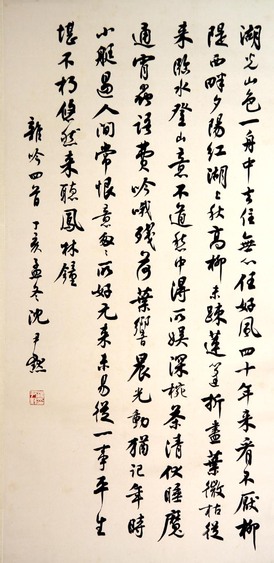 湖光山色一舟中去住無心任好風四十年來看不厭柳
隄西畔夕陽紅湖上秋高柳未疎蓮蓬折盡葉微枯從
來臨水登山意不道愁中得所娛深椀茶清伏睡魔
通宵蟲語費吟哦殘荷葉響晨光動猶記年時
小艇過人間常恨意匆〻所好元來未易從一事平生
堪不朽悠然來聽鳳林鐘
雜吟四首 丁亥孟冬沈尹默